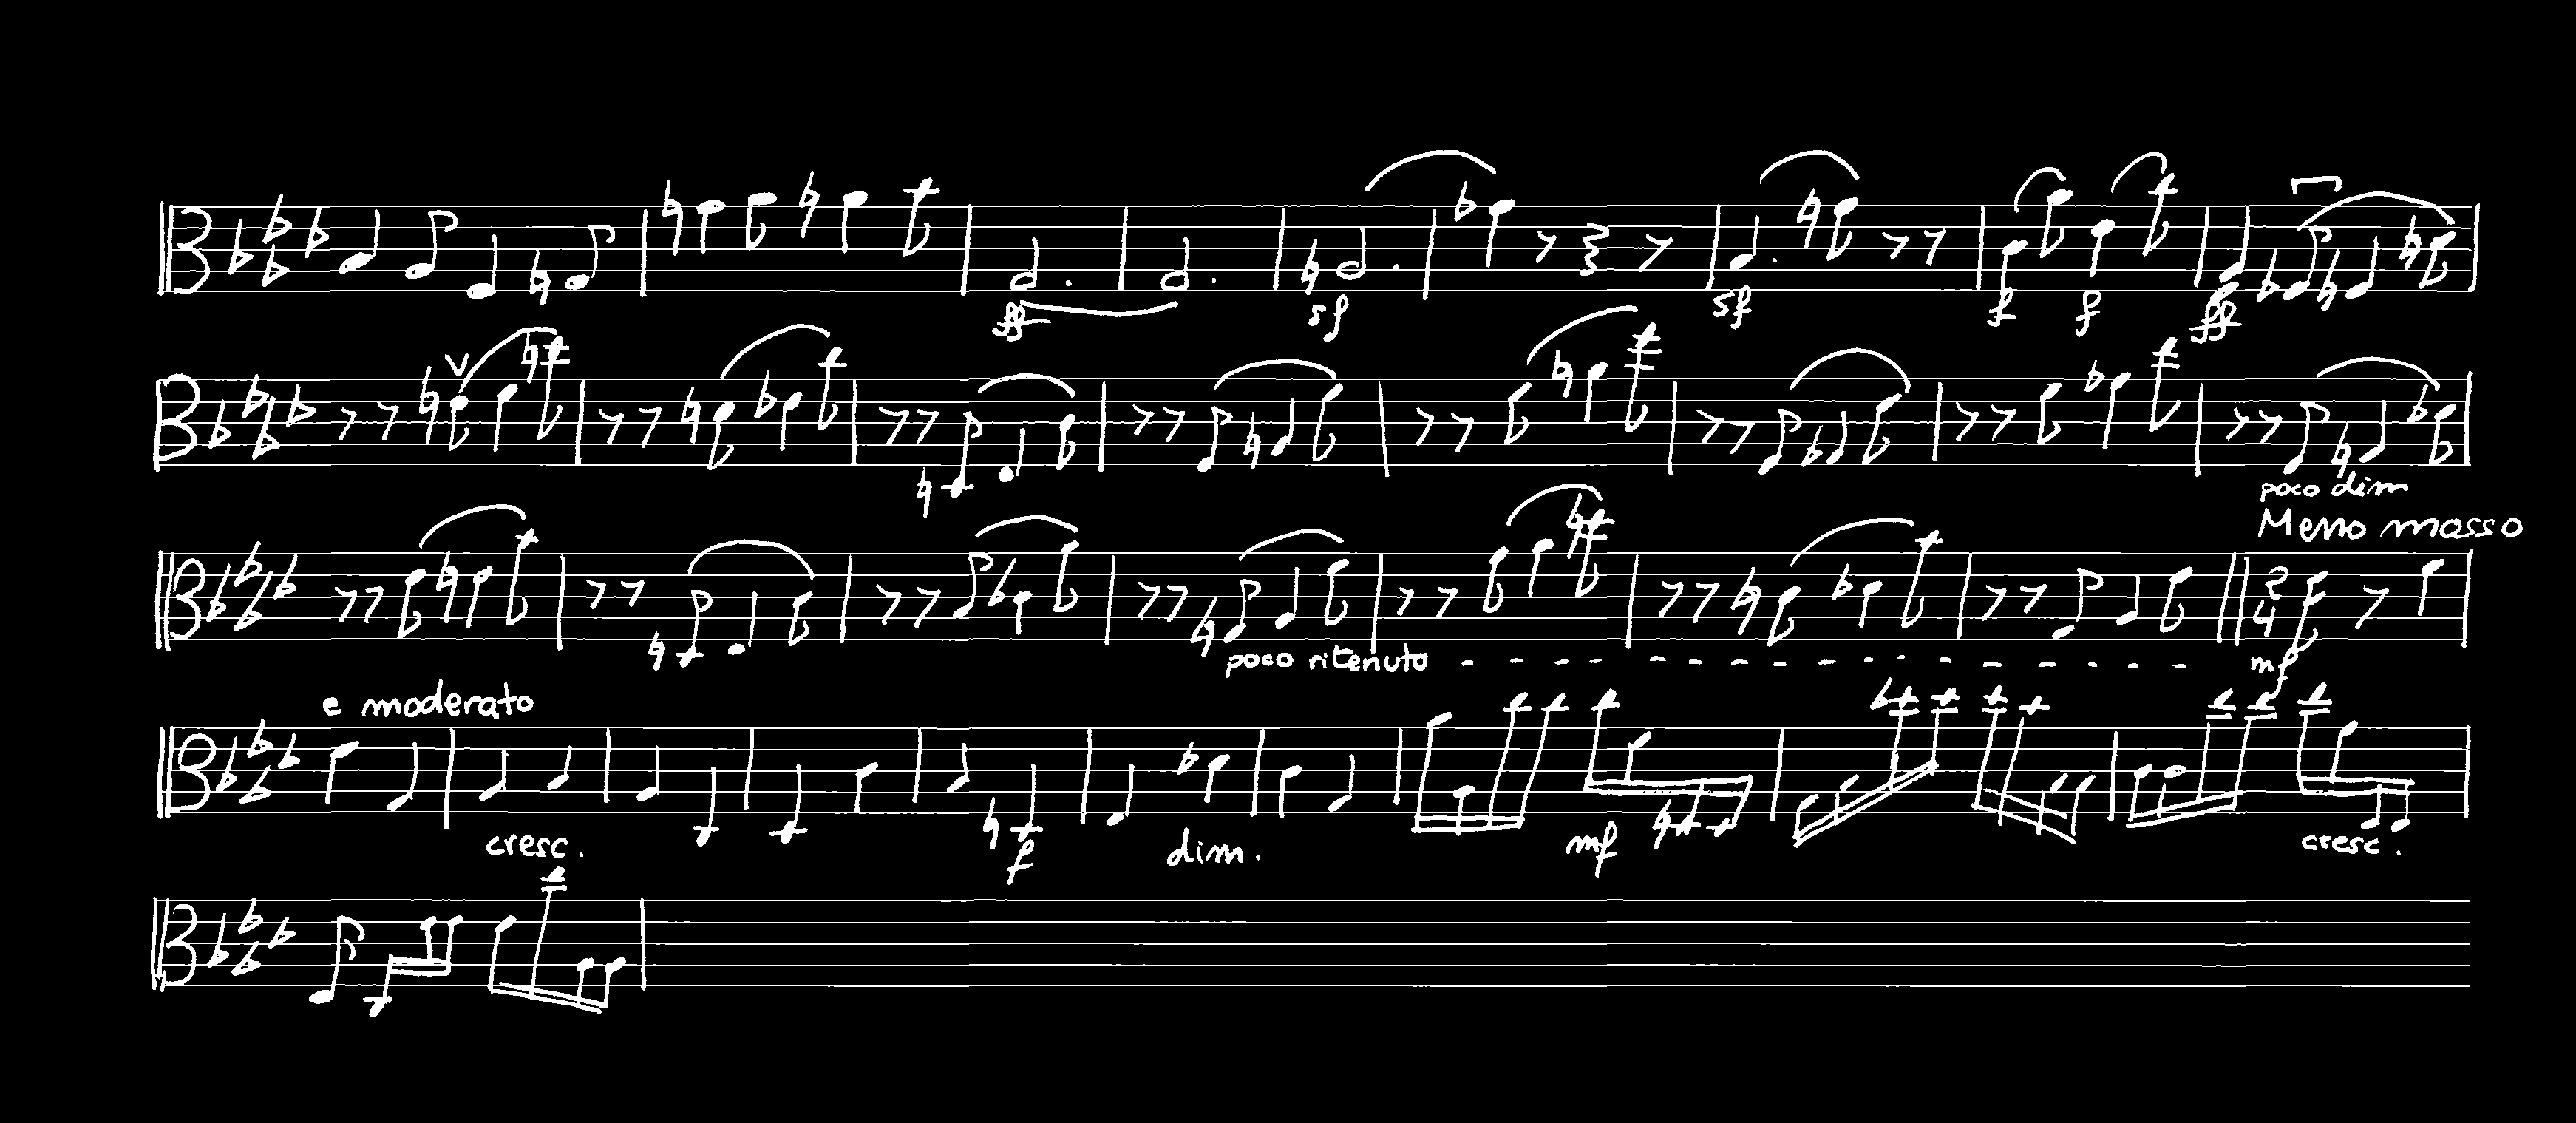 ff sf sf f f ff
poco dim
Meno mosso
poco ritenuto - - - - - - - - - - - - - - - mf
e moderato
cresc. f dim. mf cresc.